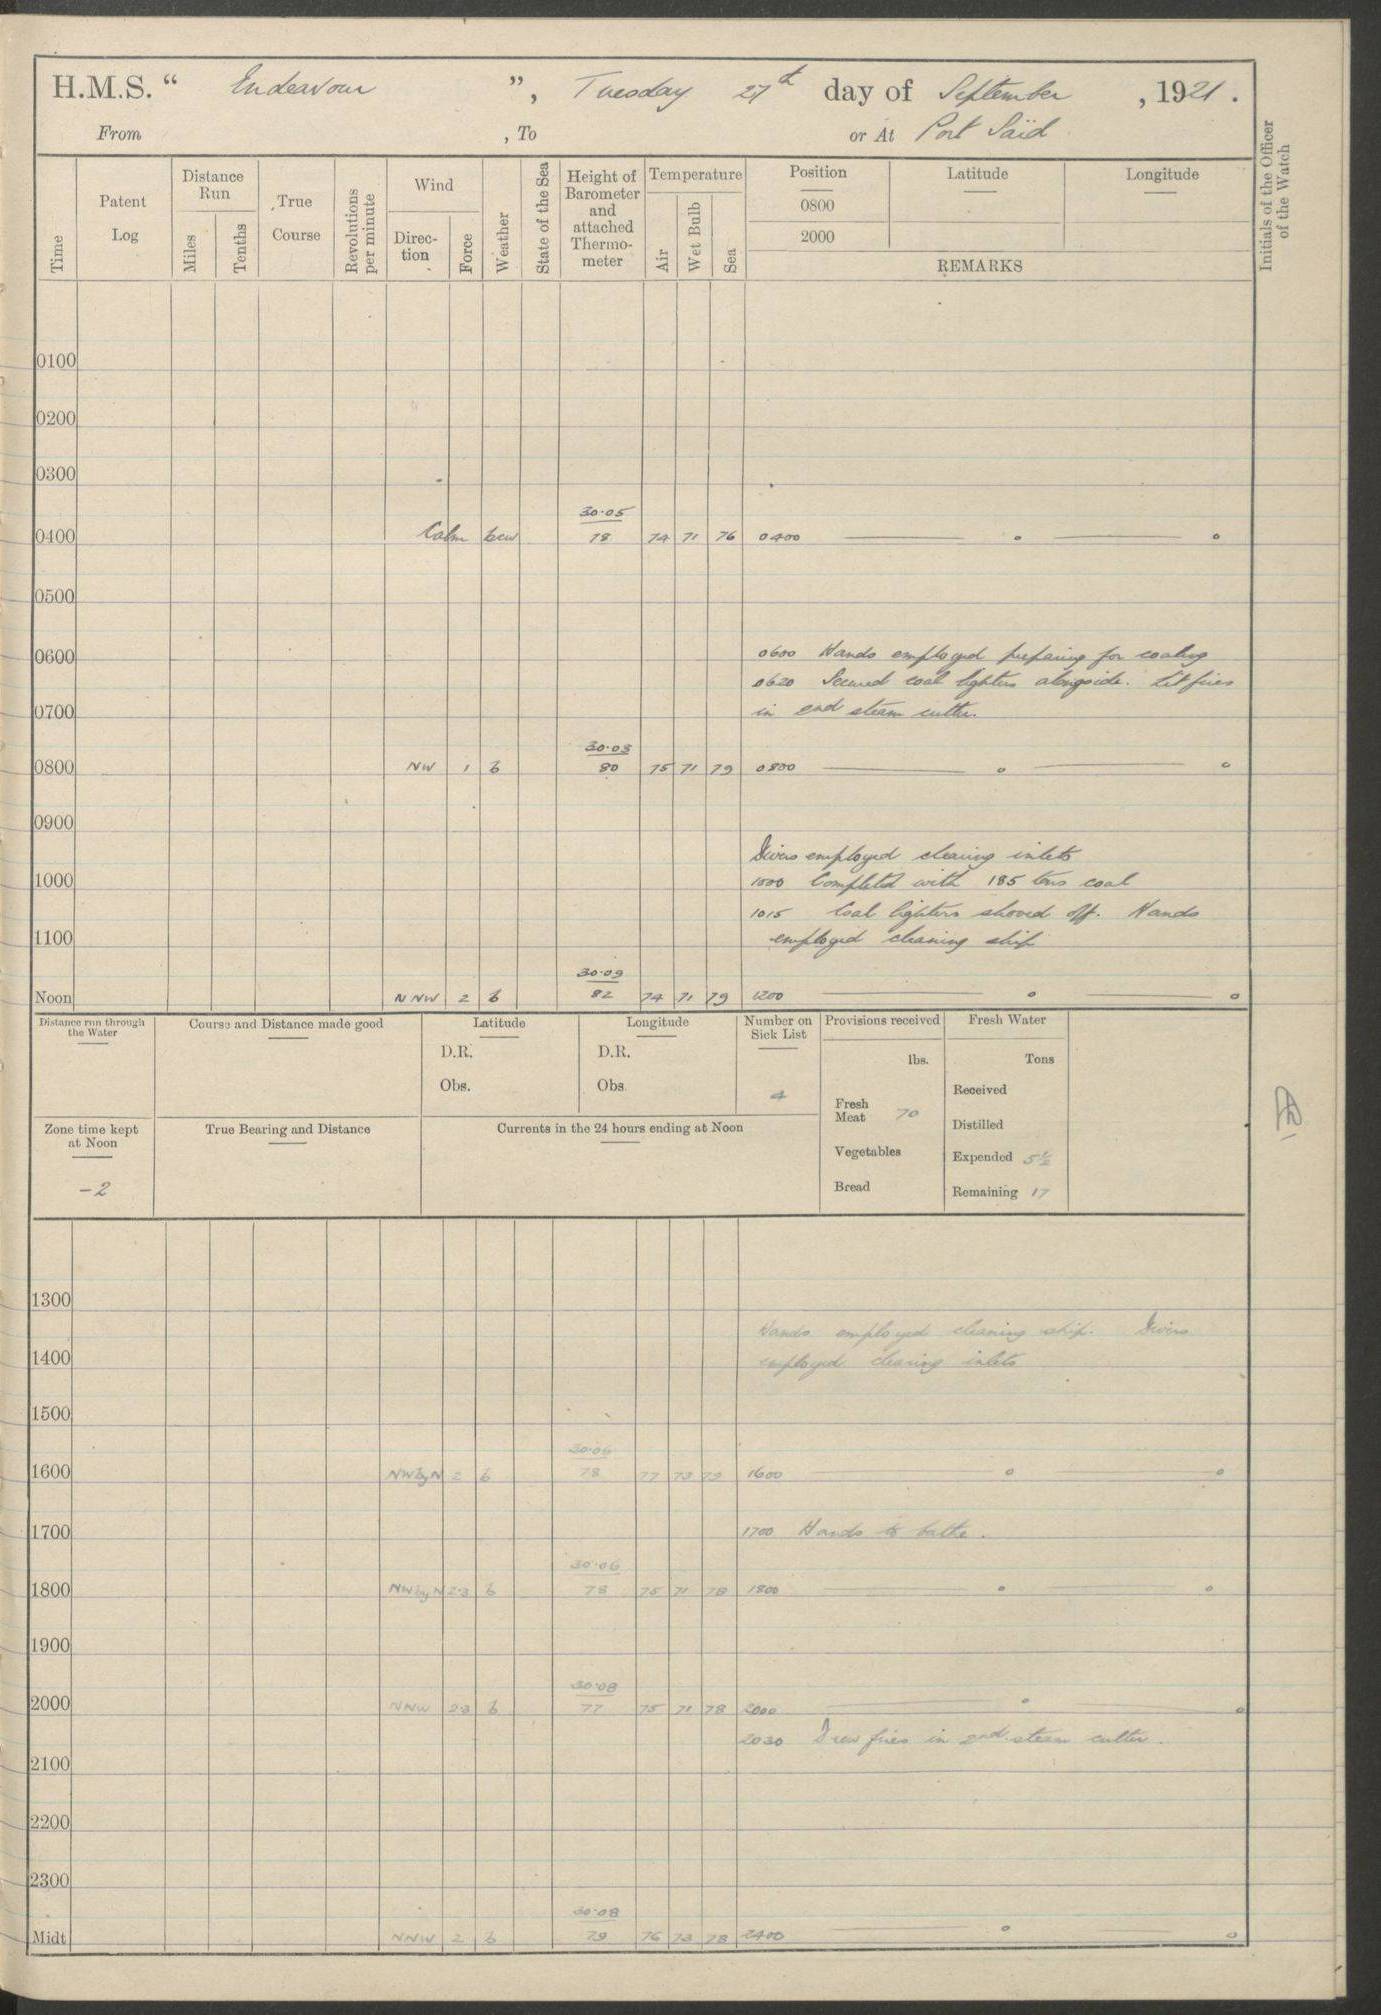 H.M.S. “ Endeavour ”, Tuesday 27th day of September , 1921 .
From , To or At Port Saïd
Time
Patent Log
Distance Run
Miles
Tenths
True Course
Revolutions per minute
Wind
Direc- tion
Force
Weather
State of the Sea
Height of Barometer and attached Thermo- meter
Temperature
Air
Wet Bulb
Sea
Position Latitude Longitude
0800
2000
REMARKS
Initials of the Officer of the Watch
0100
0200
0300
30·05
0400 Calm bcw 78 74 71 76 0400
0500
0600 0600 Hands employed preparing for coaling
0620 Secured coal lighters alongside. Lit fires
0700 in 2nd steam cutter.
30·03
0800 NW 1 b 80 75 71 79 0800
0900
Divers employed clearing inlets
1000 1000 Completed with 185 tons coal
1015 Coal lighters shoved off. Hands
1100 employed cleaning ship
30·09
Noon NNW 2 b 82 74 71 79 1200
Distance run through the Water
Course and Distance made good
Latitude
D.R.
Obs.
Longitude
D.R.
Obs.
Number on Sick List
4
Provisions received
lbs.
Fresh Meat 70
Vegetables
Bread
Fresh Water
Tons
Received
Distilled
Expended 5½
Remaining 17
Zone time kept at Noon
-2
True Bearing and Distance
Currents in the 24 hours ending at Noon
1300
Hands employed cleaning ship. Divers
1400 employed clearing inlets
1500
30·06
1600 NWbyN 2 b 78 77 73 79 1600
1700 1700 Hands to bathe.
30·06
1800 NWbyN 2·3 b 78 75 71 78 1800
1900
30·08
2000 NNW 2·3 b 77 75 71 78 2000
2030 Drew fires in 2nd steam cutter.
2100
2200
2300
30·08
Midt NNW 2 b 79 76 73 78 2400